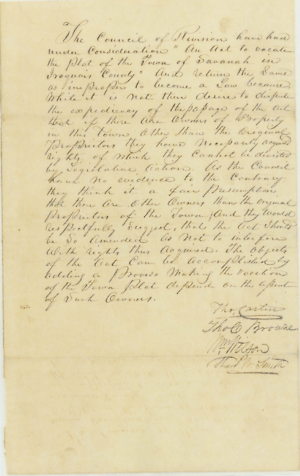 The Council of Revision have had
under Consideration "An Act to vacate
the plat of the Town of Savanah in
Iroquois County" And return the Same
as improper to become a Law because
While it is Not their desire to dispute
the expediency of the passage of the act
But if there are Owners of Property
in this town Other than the Original
Proprietors they have Necessarily acquired
rights, of which they Cannot be divested
by Legislative Action. As the Council
have No evidence to the Contrary
they think it a fair presumption
that there Are Other Owners than the original
proprietors of the Town And they Would
respectfully Suggest, that the Act Should
be So Amended As Not to interfere
With rights thus Acquired. The Objects
of the Act Can be Accomplished by
adding a proviso Making the vacation
of the Town Plat depend on the assent
of Such Owners.
Tho. Carlin
Tho. C. Browne
Wm Wilson
Theo. W. Smith